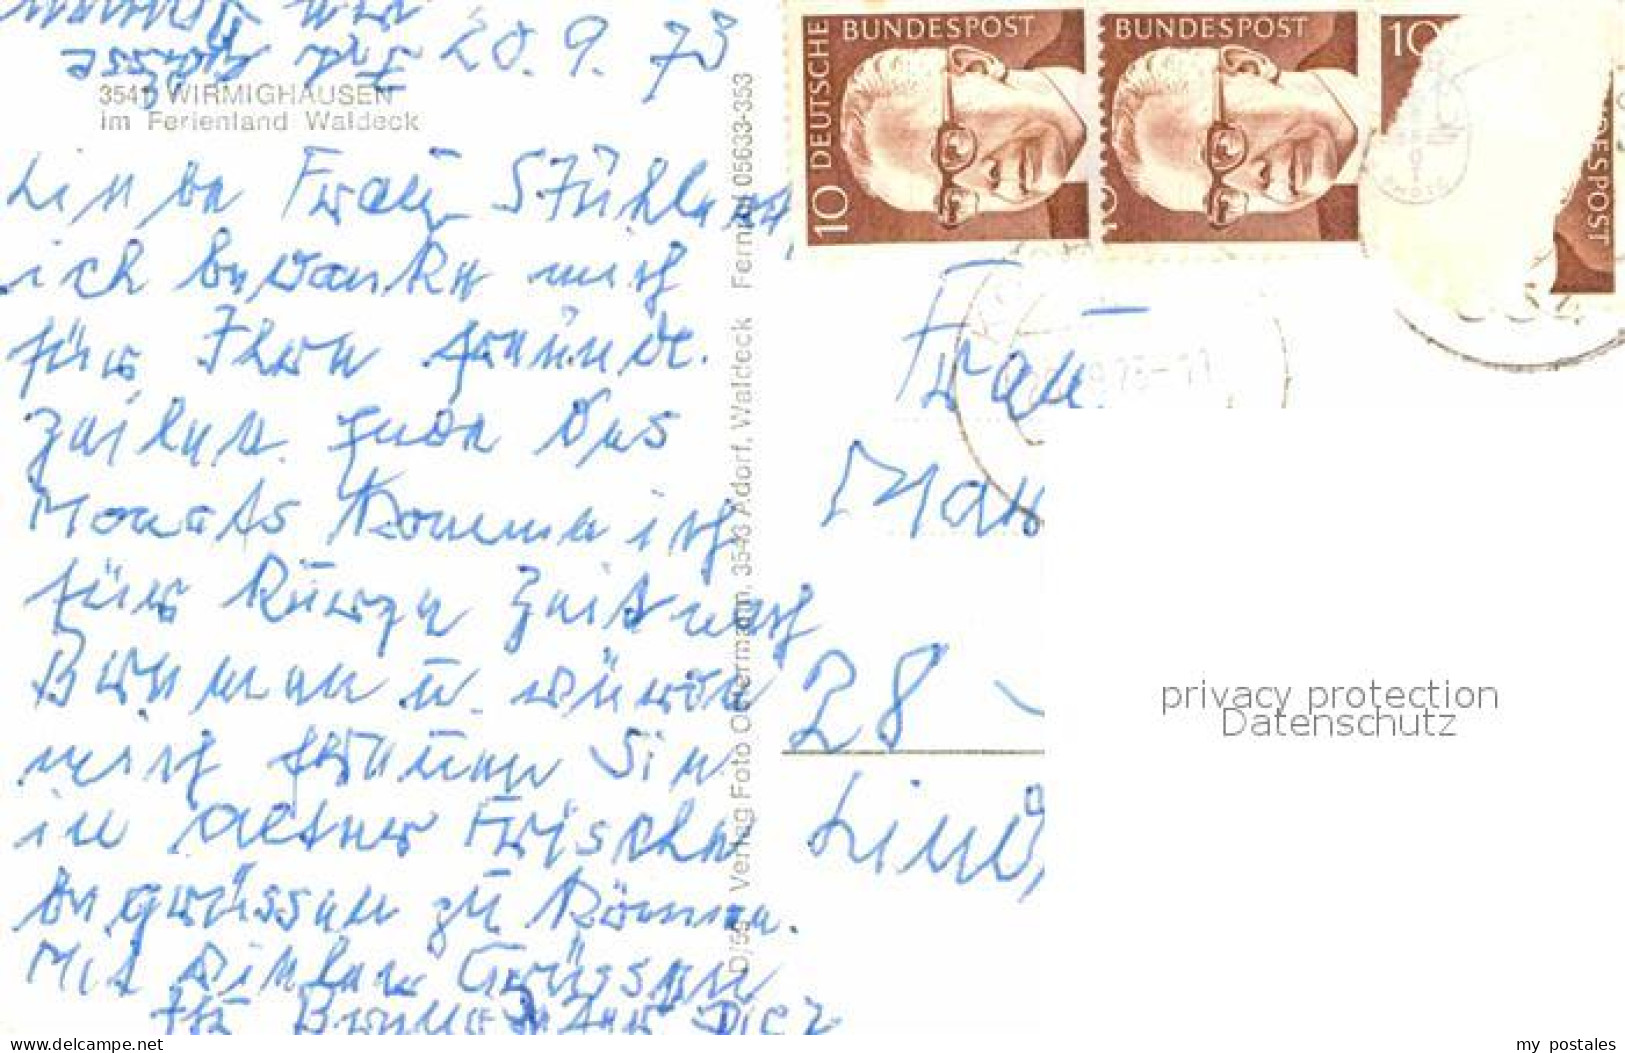 20.9.73
3541 WIRMIGHAUSEN
im Ferienland Waldeck
Liebe Frau
ich bedanke mich
für Ihre freundl.
Zeilen. Ende des
Monats komme ich
für kurze Zeit nach
Bremen u. würde
mich freuen Sie
in alter Frische
begrüssen zu können.
Mit vielen Grüssen
Ihr
D/59 Verlag Foto Ostermann, 3543 Adorf, Waldeck Fernruf 05633-353
DEUTSCHE BUNDESPOST
10
BUNDESPOST
10
10
Frau
28
privacy protection
Datenschutz
www.delcampe.net
my_postales